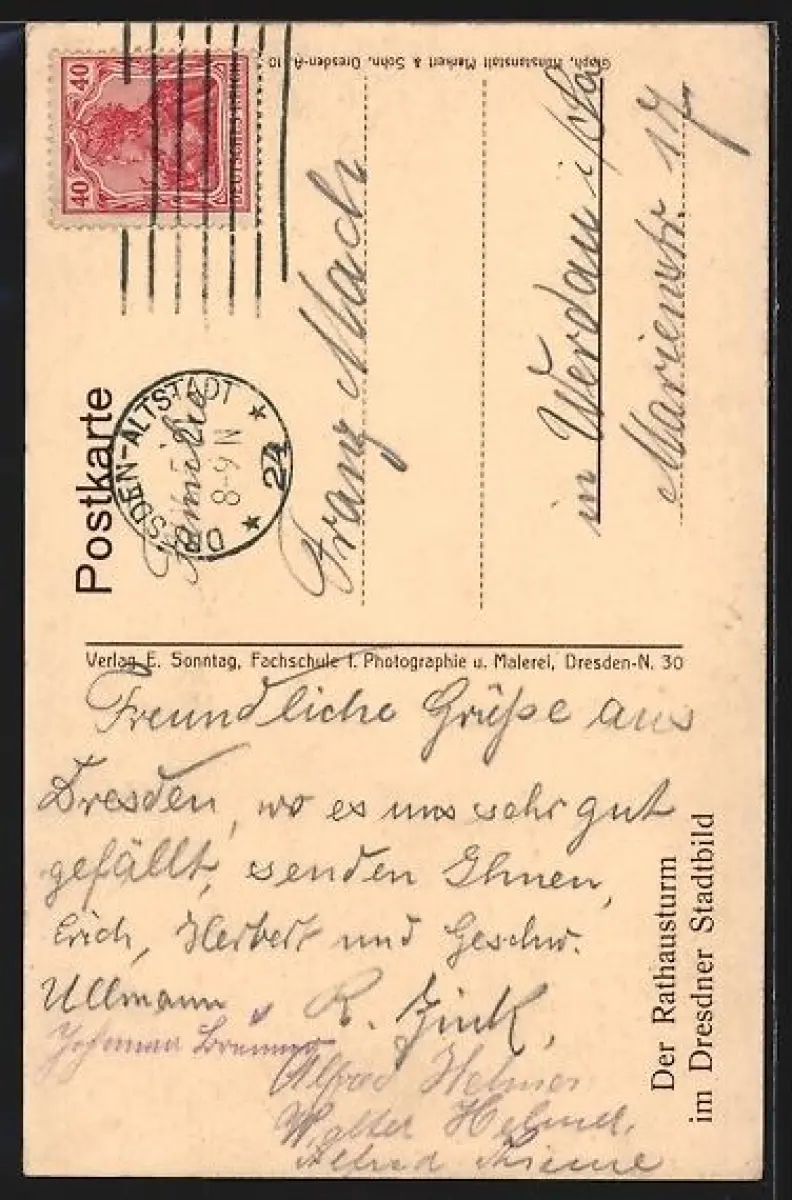 40 40
DEUTSCHES REICH
Graph. Kunstanstalt Menkert & Sohn, Dresden-A. 10
Postkarte
DRESDEN-ALTSTADT
8-9 N
24
Familie
Franz Mach
in Werdau i/Sa
Marienstr. 17
Verlag E. Sonntag, Fachschule f. Photographie u. Malerei, Dresden-N. 30
Freundliche Grüße aus
Dresden, wo es uns sehr gut
gefällt, senden Ihnen,
Erich, Herbert und Geschw.
Ullmann
R. Zink,
Alfred
Walter
Alfred Thieme
Der Rathausturm
im Dresdner Stadtbild